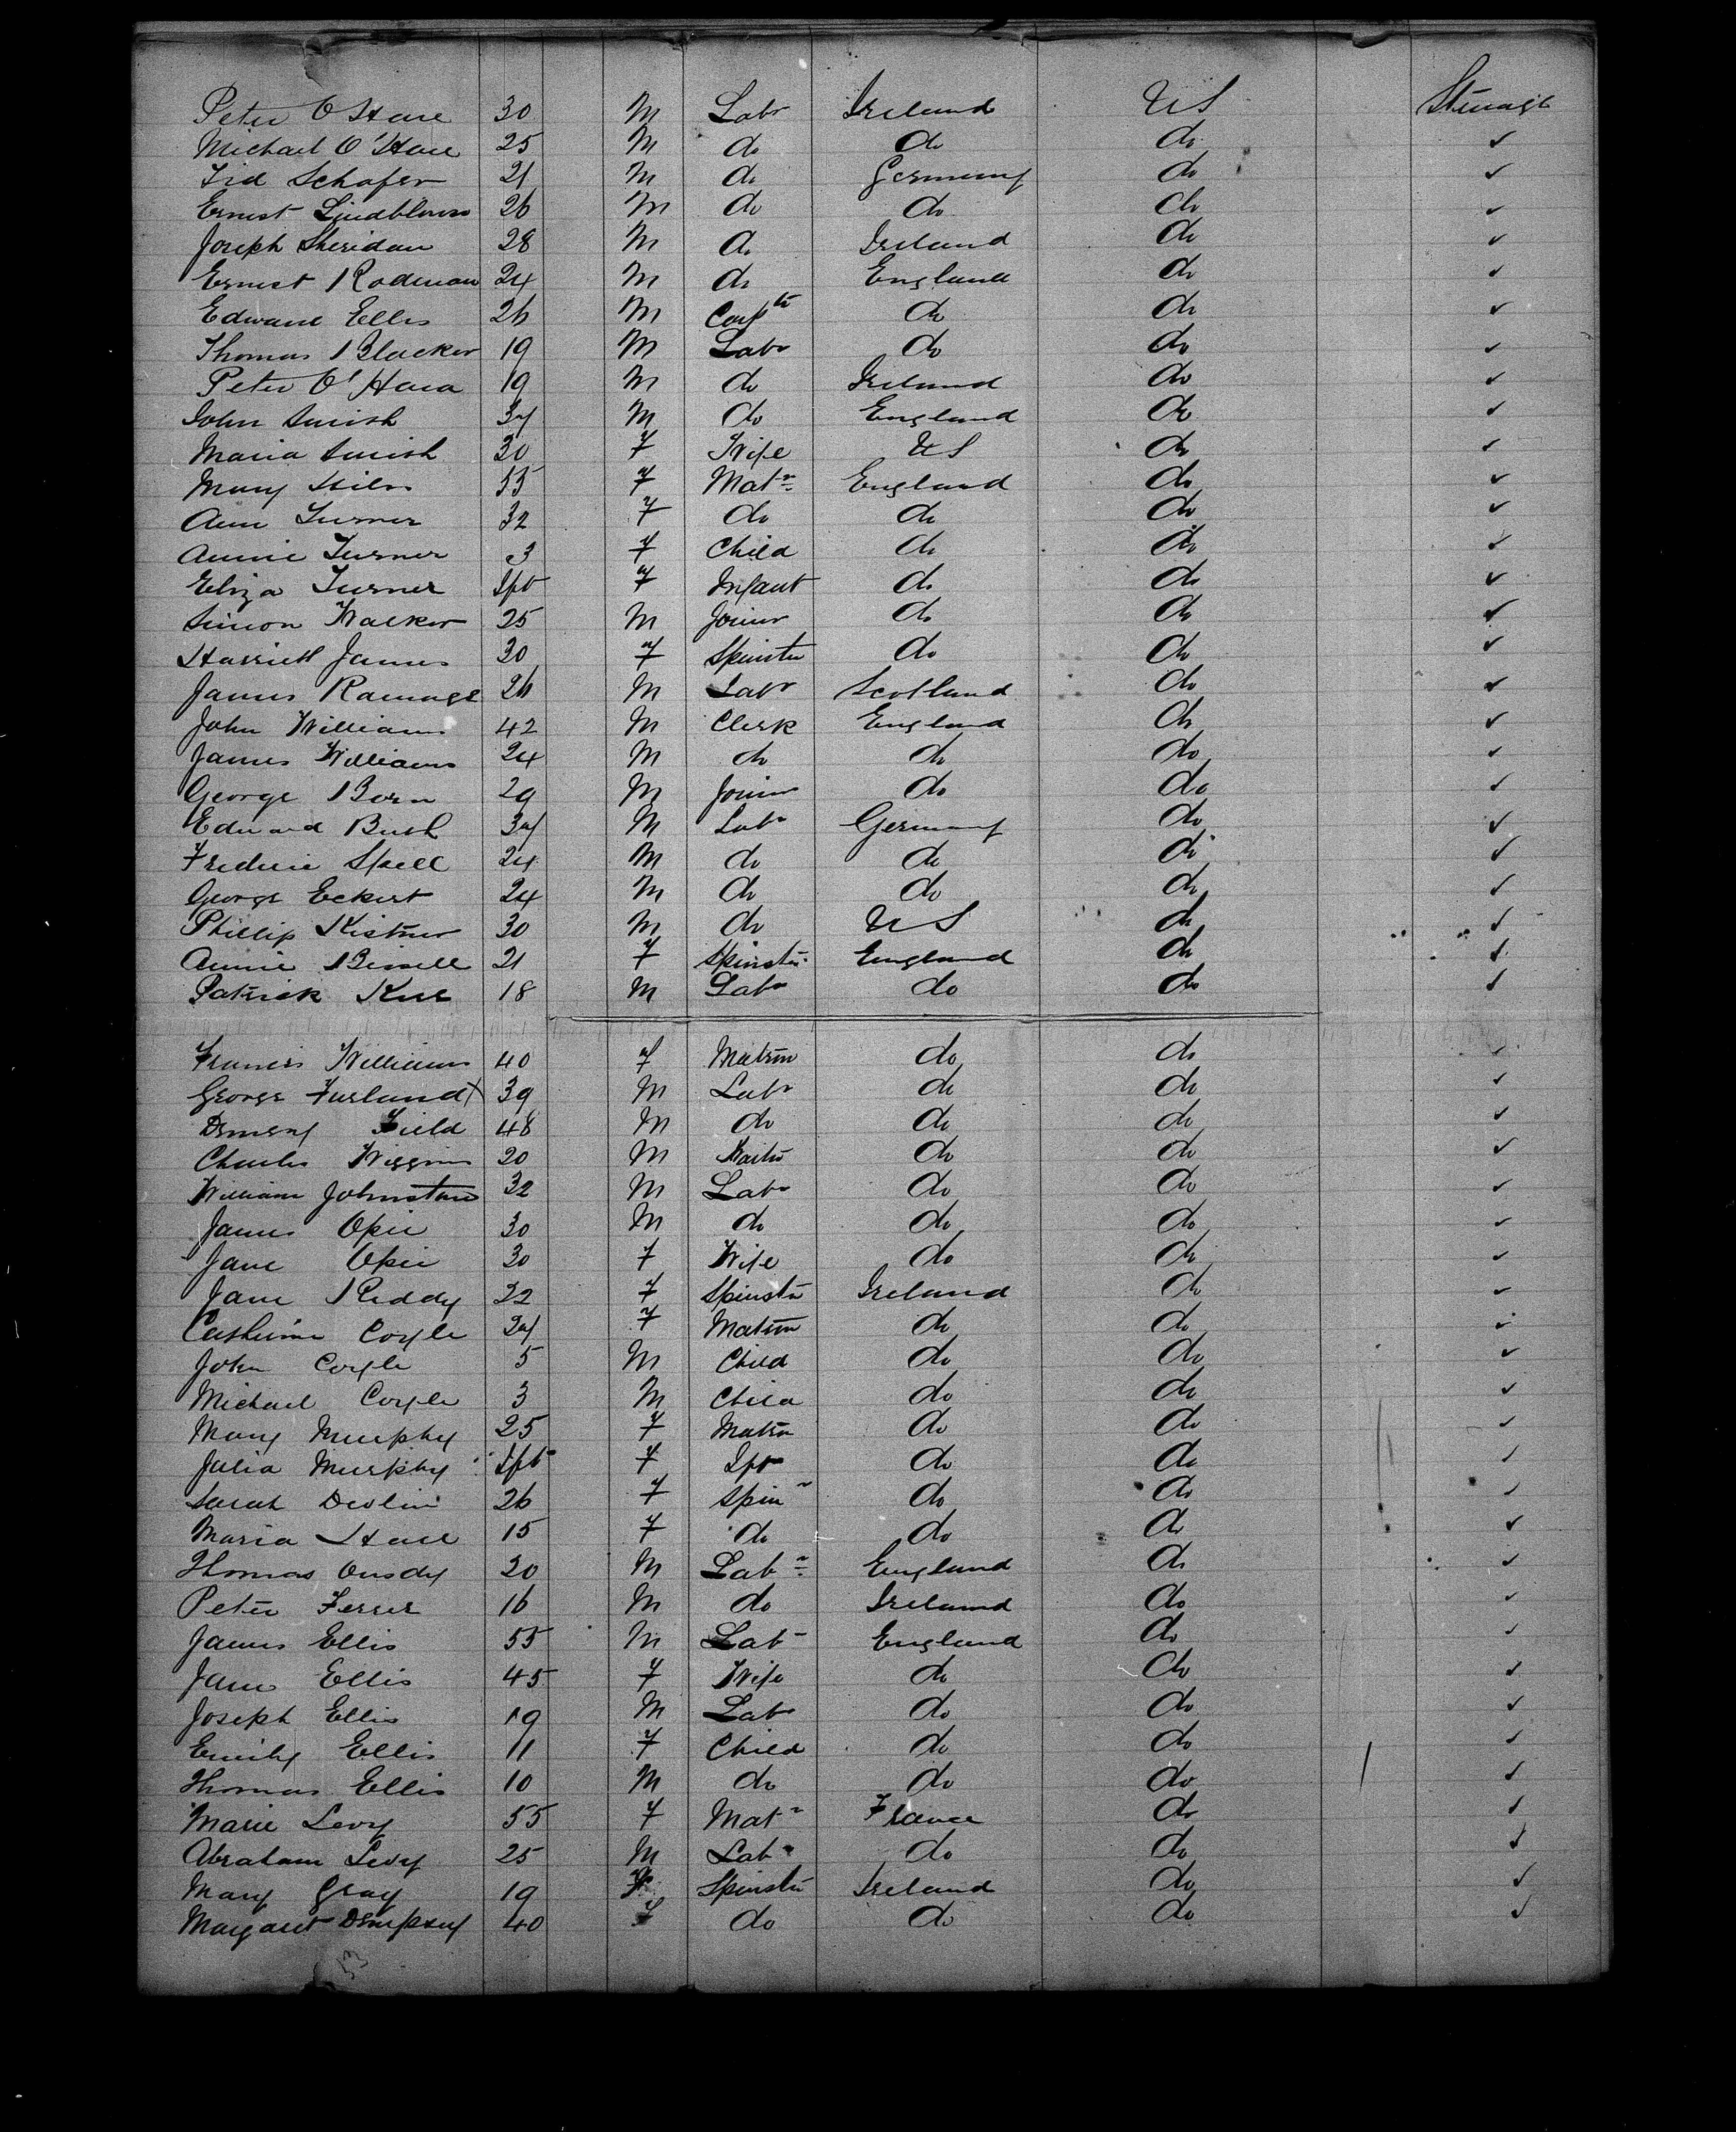 Peter O'Hare 30 M Labr Ireland US Steerage
Michael O'Hare 25 M do do do ✓
Frd Schafer 21 M do Germany do ✓
Ernest Lindbloms 26 M do do do ✓
Joseph Sheridan 28 M do Ireland do ✓
Ernest Rodman 24 M do England do ✓
Edward Ellis 26 M Carptr do do ✓
Thomas Blacker 19 M Labr do do ✓
Peter O'Hara 19 M do Ireland do ✓
John Smith 34 M do England do ✓
Maria Smith 30 F Wife US do ✓
Mary 55 F Matn England do ✓
Ann Turner 32 F do do do ✓
Annie Turner 3 F Child do do ✓
Eliza Turner Ift F Infant do do ✓
Simon Walker 25 M Joiner do do ✓
Harriett James 30 F Spinster do do ✓
James Ramage 26 M Labr Scotland do ✓
John Williams 42 M Clerk England do ✓
James Williams 24 M do do do ✓
George Born 29 M Joiner do do ✓
Edward Bush 34 M Labr Germany do ✓
Frederic Spell 24 M do do do ✓
George Eckert 24 M do do do ✓
Phillip Kistner 30 M do US do ✓
Annie Bissell 21 F Spinster England do ✓
Patrick 18 M Labr do do ✓
Francis Williams 40 F Matron do do ✓
George Furland X 39 M Labr do do ✓
Field 48 M do do do ✓
Charles Wiggins 20 M do do ✓
William Johnstone 32 M Labr do do ✓
James Opie 30 M do do do ✓
Jane Opie 30 F Wife do do ✓
Jane Reddy 22 F Spinster Ireland do ✓
Catherine Coyle 24 F Matron do do ✓
John Coyle 5 M Child do do ✓
Michael Coyle 3 M Child do do ✓
Mary Murphy 25 F Matrn do do ✓
Julia Murphy Ift F Ift do do ✓
Sarah Devlin 26 F Spinr do do ✓
Maria Hall 15 F do do do ✓
Thomas Ousdy 20 M Labr England do ✓
Peter Ferrer 16 M do Ireland do ✓
James Ellis 55 M Lab England do ✓
Jane Ellis 45 F Wife do do ✓
Joseph Ellis 19 M Lab do do ✓
Emily Ellis 11 F Child do do ✓
Thomas Ellis 10 M do do do ✓
Marie Levy 55 F Matn France do ✓
Abraham Levy 25 M Lab do do ✓
Mary Gray 19 F Spinster Ireland do ✓
Margaret Dempsey 40 F do do do ✓
53